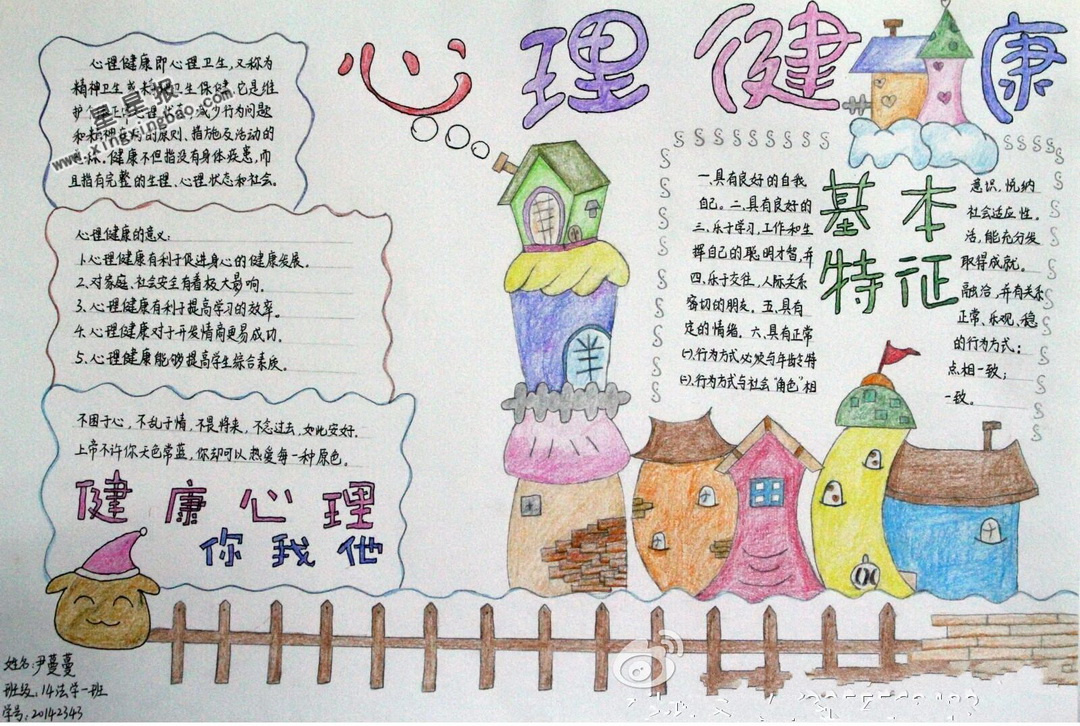 心理健康
心理健康即心理卫生,又称为
精神卫生或
护
和精神
健康不但指没有身体疾患,而
且指有完整的生理、心理状态和社会。
星星报
www.xingxingbao.com
心理健康的意义:
1.心理健康有利于促进身心的健康发展。
2.对家庭、社会安全有着极大影响。
3.心理健康有利于提高学习的效率。
4.心理健康对于开发情商更易成功。
5.心理健康能够提高学生综合素质。
不困于心,不乱于情,不畏将来,不念过去,如此安好.
上帝不许你天色常蓝,你却可以热爱每一种原色。
健康心理
你我他
基本
特征
一.具有良好的自我 意识,悦纳
自己。二.具有良好的 社会适应性。
三.乐于学习,工作和生 活,能充分发
挥自己的聪明才智,并 取得成就。
四.乐于交往,人际关系 融洽,并有关系
密切的朋友。五.具有 正常、乐观、稳
定的情绪。六.具有正常 的行为方式:
㈠.行为方式必须与年龄特 点相一致;
㈡.行为方式与社会“角色”相 一致。
姓名:尹蔓蔓
班级:14法学一班
学号:20142343